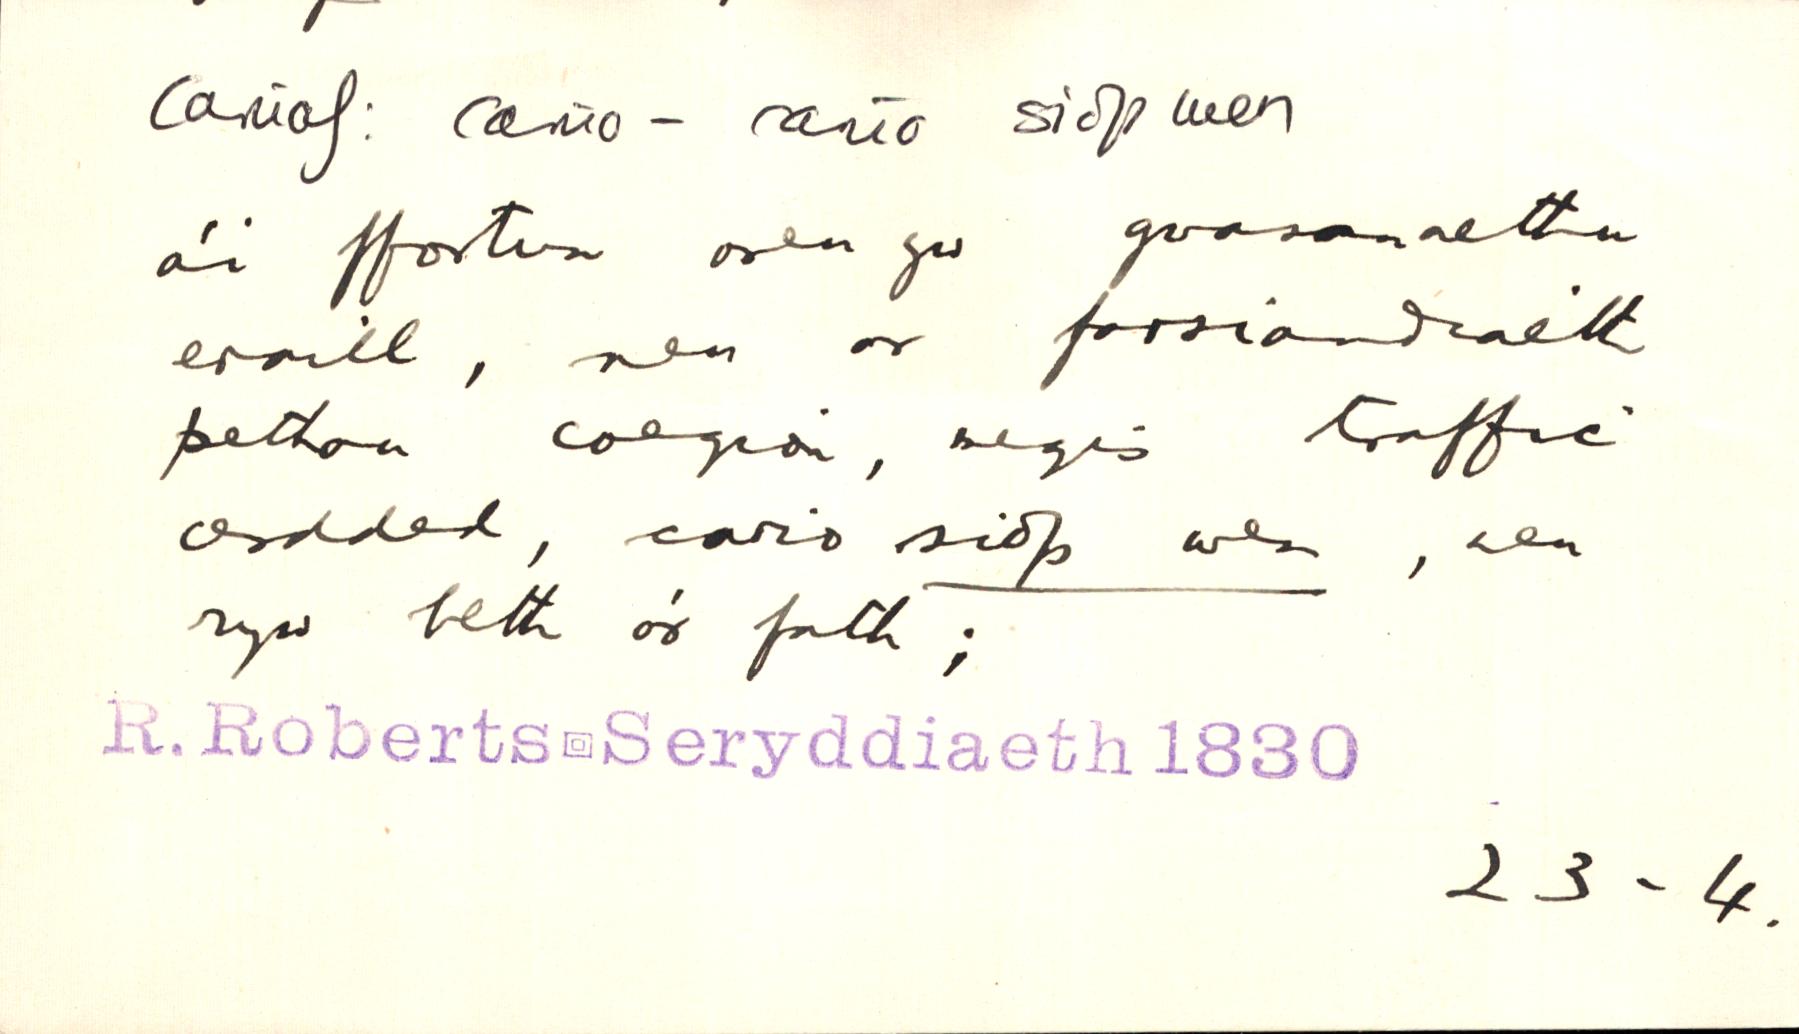 cariaf: cario - cario siop wen
a'i ffortun oreu yw gwasanaethu
eraill, neu ar farsiandiaeth
pethau coegion, megis traffic
cerdded, cario siop wen, neu
ryw beth o'r fath;
R. Roberts Seryddiaeth 1830
23-4.